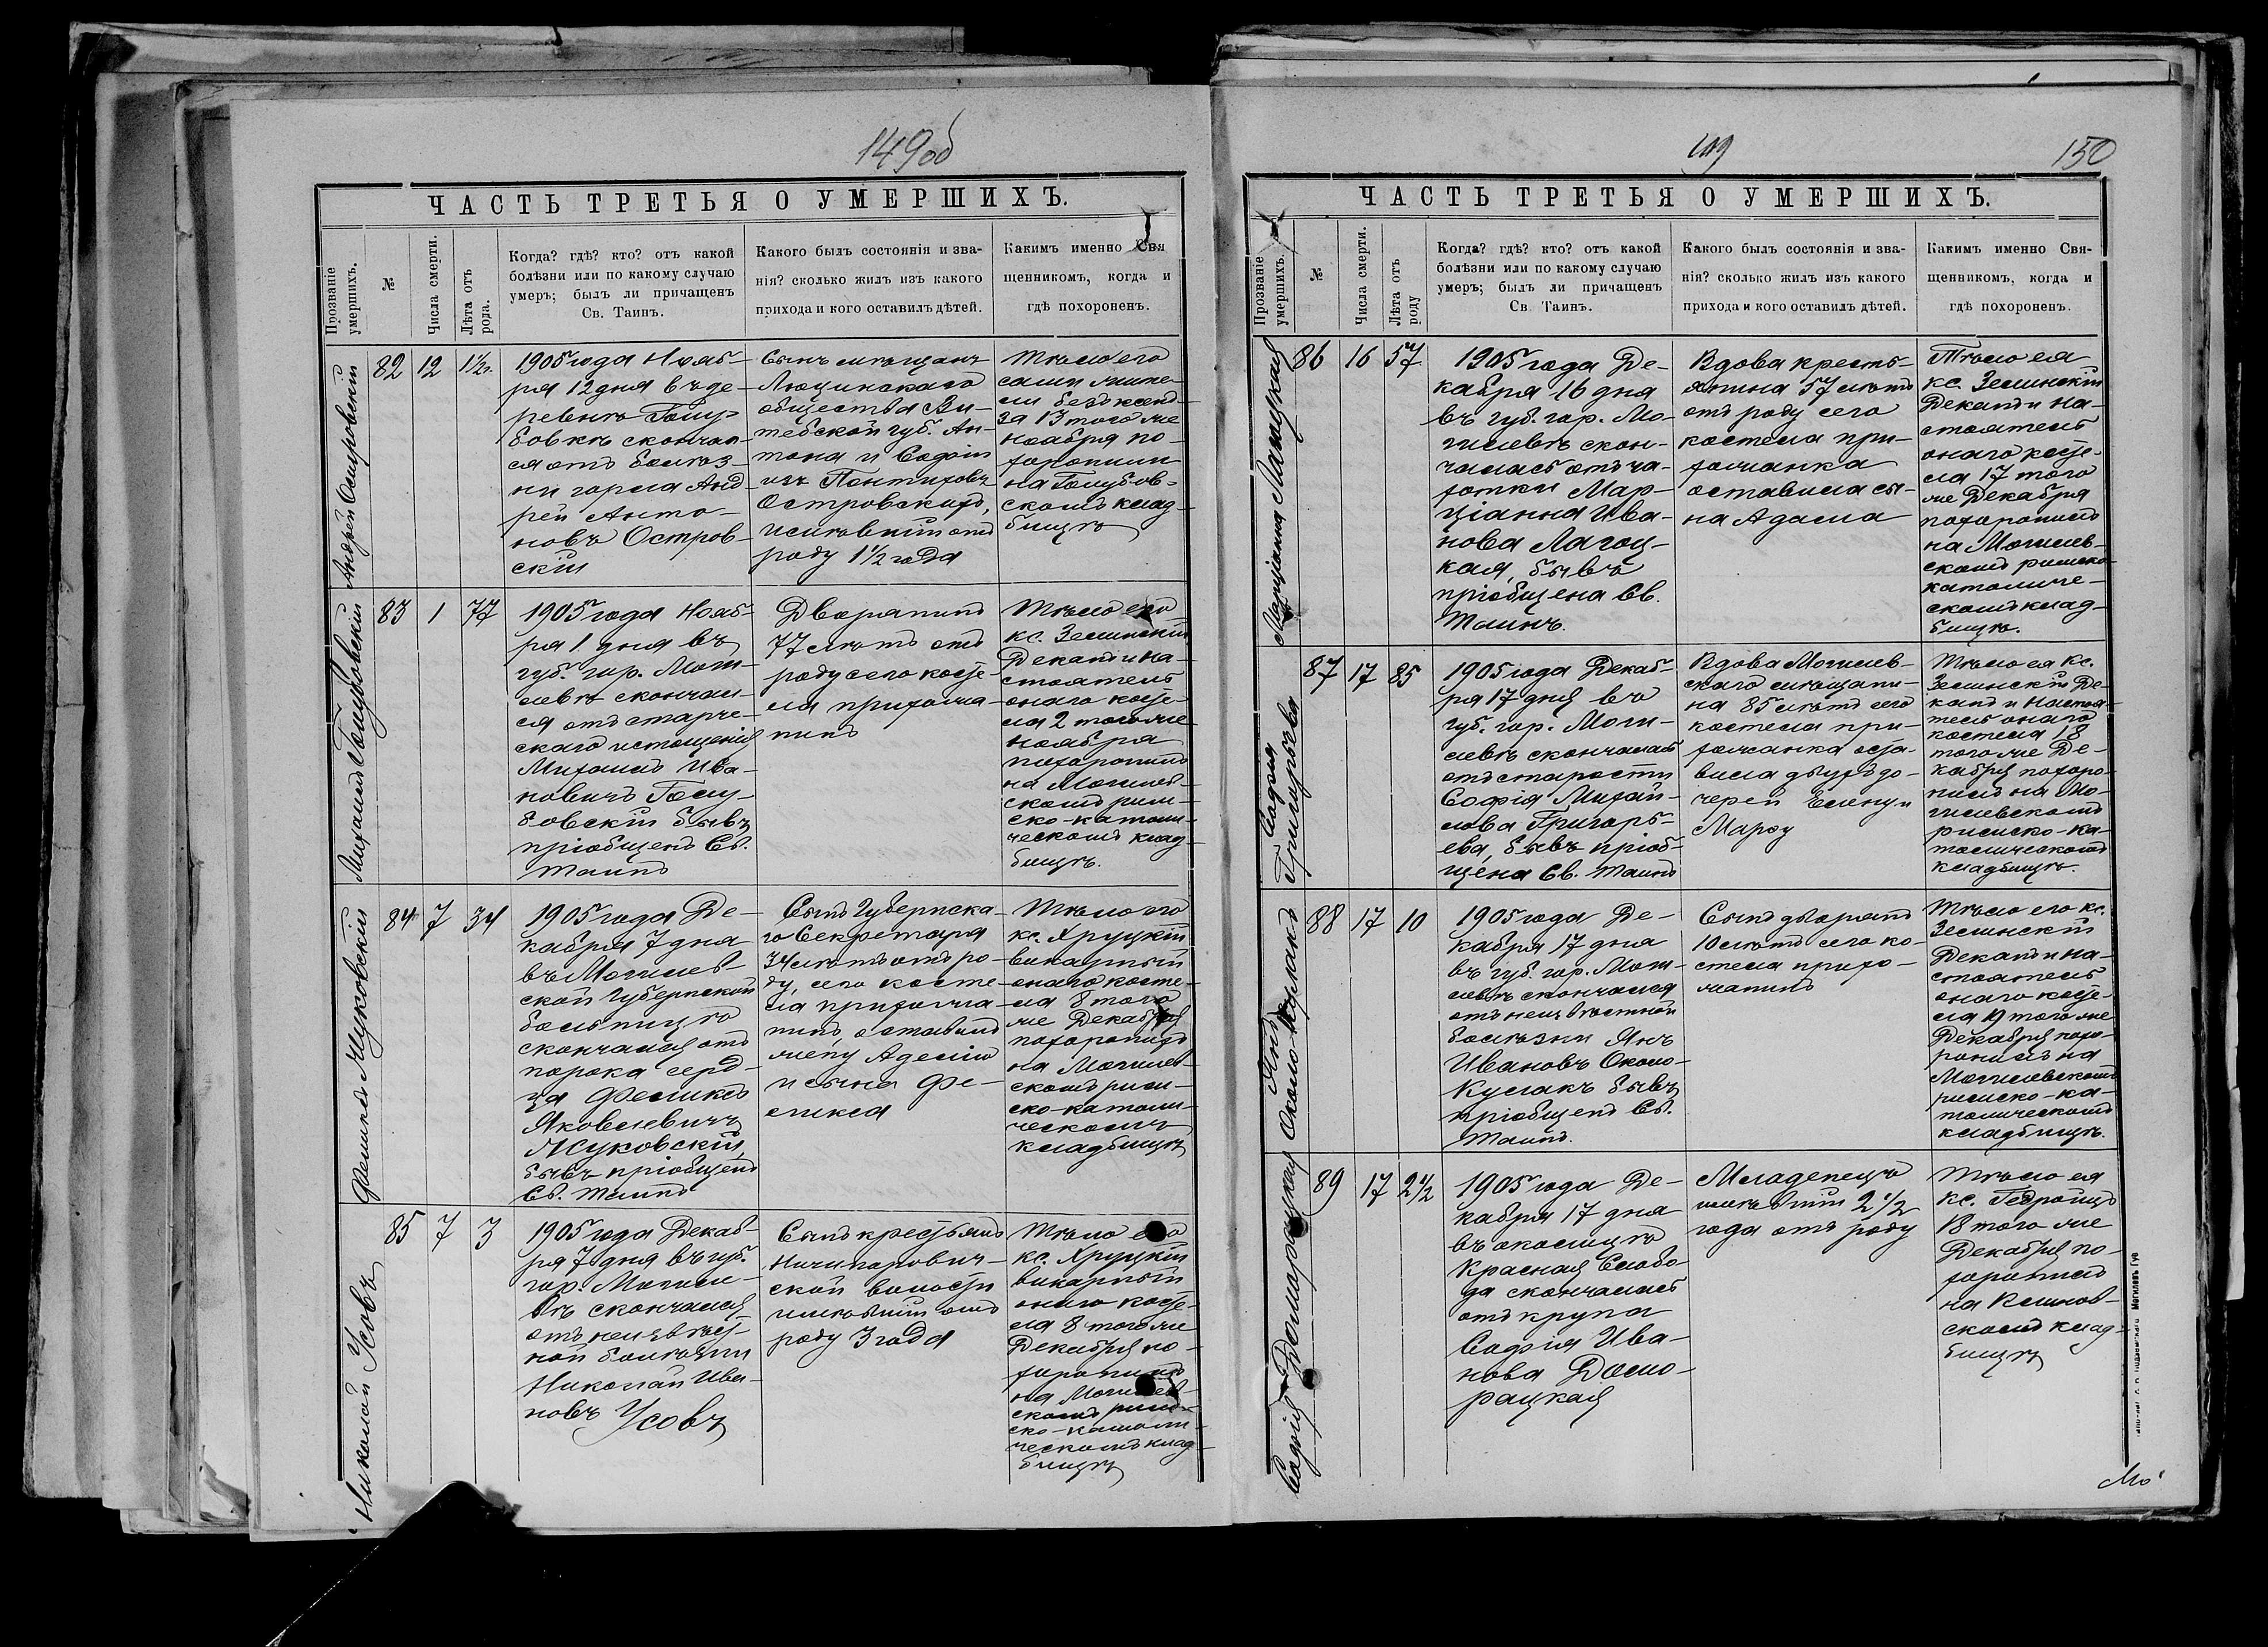 149об
ЧАСТЬ ТРЕТЬЯ О УМЕРШИХЪ.
Прозваніе умершихъ.
№
Числа смерти.
Лѣта отъ рода.
Когда? гдѣ? кто? отъ какой
болѣзни или по какому случаю
умеръ; былъ ли причащенъ
Св. Таинъ.
Какого былъ состоянія и зва-
нія? сколько жилъ изъ какого
прихода и кого оставилъ дѣтей.
Какимъ именно Свя
щенникомъ, когда и
гдѣ похороненъ.
Андрей Островскій
82
12
1½
1905 года Нояб-
ря 12 дня въ де-
ревнѣ Голу-
бовкѣ скончал-
ся отъ болѣз-
ни горла Анд-
рей Анто-
новъ Остров-
скій
Сынъ мѣщанъ
Люцинскаго
общества Ви-
тебской губ. Ан-
тона и Софіи
изъ
Островскихъ,
имѣвшій отъ
роду 1½ года
Тѣло его
сами жите-
ли безъ ксенд-
за 13 того же
ноября по-
хоронили
на Голубов-
скомъ клад-
бищѣ
Михаилъ Голубовскій
83
1
77
1905 года Нояб-
ря 1 дня въ
губ. гор. Моги-
левѣ скончал-
ся отъ старче-
скаго истощенія
Михаилъ Ива-
новичъ Голу-
бовскій бывъ
пріобщенъ Св.
Таинъ
Дворянинъ
77 лѣтъ отъ
роду сего косте-
ла прихожа-
нинъ
Тѣло его
кс. Зелинскій
Деканъ и На-
стоятель
онаго косте-
ла 2 того же
ноября
похоронилъ
на Могилев-
скомъ рим-
ско-католи-
ческомъ клад-
бищѣ.
Феликсъ Жуковскій
84
7
34
1905 года Де-
кабря 7 дня
въ Могилев-
ской Губернской
больницѣ
скончался отъ
порока серд-
ца Феликсъ
Яковлевичъ
Жуковскій,
бывъ пріобщенъ
Св. Таинъ
Сынъ Губернска-
го Секретаря
34 лѣтъ отъ ро-
ду, сего косте-
ла прихожа-
нинъ, оставилъ
жену Аделію
и сына Фе-
ликса
Тѣло его
кс. Хруцкій
викарный
онаго косте-
ла 8 того
же Декабря
похоронилъ
на Могилев-
скомъ рим-
ско-католи-
ческомъ
кладбищѣ
Николай Усовъ
85
7
3
1905 года Декаб-
ря 7 дня въ губ.
гор. Могиле-
вѣ скончался
отъ неизвѣст-
ной болѣзни
Николай Ива-
новъ Усовъ
Сынъ крестьянъ
Ничипорович-
ской волости
имѣвшій отъ
роду 3 года
Тѣло его
кс. Хруцкій
викарный
онаго косте-
ла 8 того же
Декабря по-
хоронилъ
на Могилев-
скомъ рим-
ско-католи-
ческомъ клад-
бищѣ
150
ЧАСТЬ ТРЕТЬЯ О УМЕРШИХЪ.
Прозваніе умершихъ.
№
Числа смерти.
Лѣта отъ роду
Когда? гдѣ? кто? отъ какой
болѣзни или по какому случаю
умеръ; былъ ли причащенъ
Св Таинъ.
Какого былъ состоянія и зва-
нія? сколько жилъ изъ какого
прихода и кого оставилъ дѣтей.
Какимъ именно Свя-
щенникомъ, когда и
гдѣ похороненъ.
Марціанна Лагоцкая
86
16
57
1905 года Де-
кабря 16 дня
въ губ. гор. Мо-
гилевѣ скон-
чалась отъ ча-
хотки Мар-
ціанна Ива-
нова Лагоц-
кая, бывъ
пріобщена Св.
Таинъ.
Вдова кресть-
янина 57 лѣтъ
отъ роду сего
костела при-
хожанка
оставила сы-
на Адама
Тѣло ея
кс. Зелинскій
Деканъ и На-
стоятель
онаго косте-
ла 17 того
же Декабря
похоронилъ
на Могилев-
скомъ римско-
католиче-
скомъ клад-
бищѣ.
Софія Григорьева
87
17
85
1905 года Декаб-
ря 17 дня въ
губ. гор. Моги-
левѣ скончалась
отъ старости
Софія Михай-
лова Григорь-
ева, бывъ пріоб-
щена Св. Таинъ
Вдова Могилев-
скаго мѣщани-
на 85 лѣтъ сего
костела при-
хожанка оста-
вила двухъ до-
черей Елену и
Марту
Тѣло ея кс.
Зелинскій Де-
канъ и Настоя-
тель онаго
костела 18
того же Де-
кабря похоро-
нилъ на Мо-
гилевскомъ
римско-ка-
толическомъ
кладбищѣ.
Янъ Около-Кулакъ
88
17
10
1905 года Де-
кабря 17 дня
въ губ. гор. Моги-
левѣ скончался
отъ неизвѣстной
болѣзни Янъ
Ивановъ Около-
Кулакъ бывъ
пріобщенъ Св.
Таинъ.
Сынъ дворянъ
10 лѣтъ сего ко-
стела прихо-
жанинъ
Тѣло его кс.
Зелинскій
Деканъ и На-
стоятель
онаго косте-
ла 19 того же
Декабря похо-
ронилъ на
Могилевскомъ
римско-ка-
толическомъ
кладбищѣ.
Софія Доморацкая
89
17
2½
1905 года Де-
кабря 17 дня
въ околицѣ
Красная Слобо-
да скончалась
отъ крупа
Софія Ива-
нова Домо-
рацкая
Младенецъ
имѣвшій 2½
года отъ роду
Тѣло ея
кс.
18 того же
Декабря по-
хоронилъ
на
скомъ клад-
бищѣ